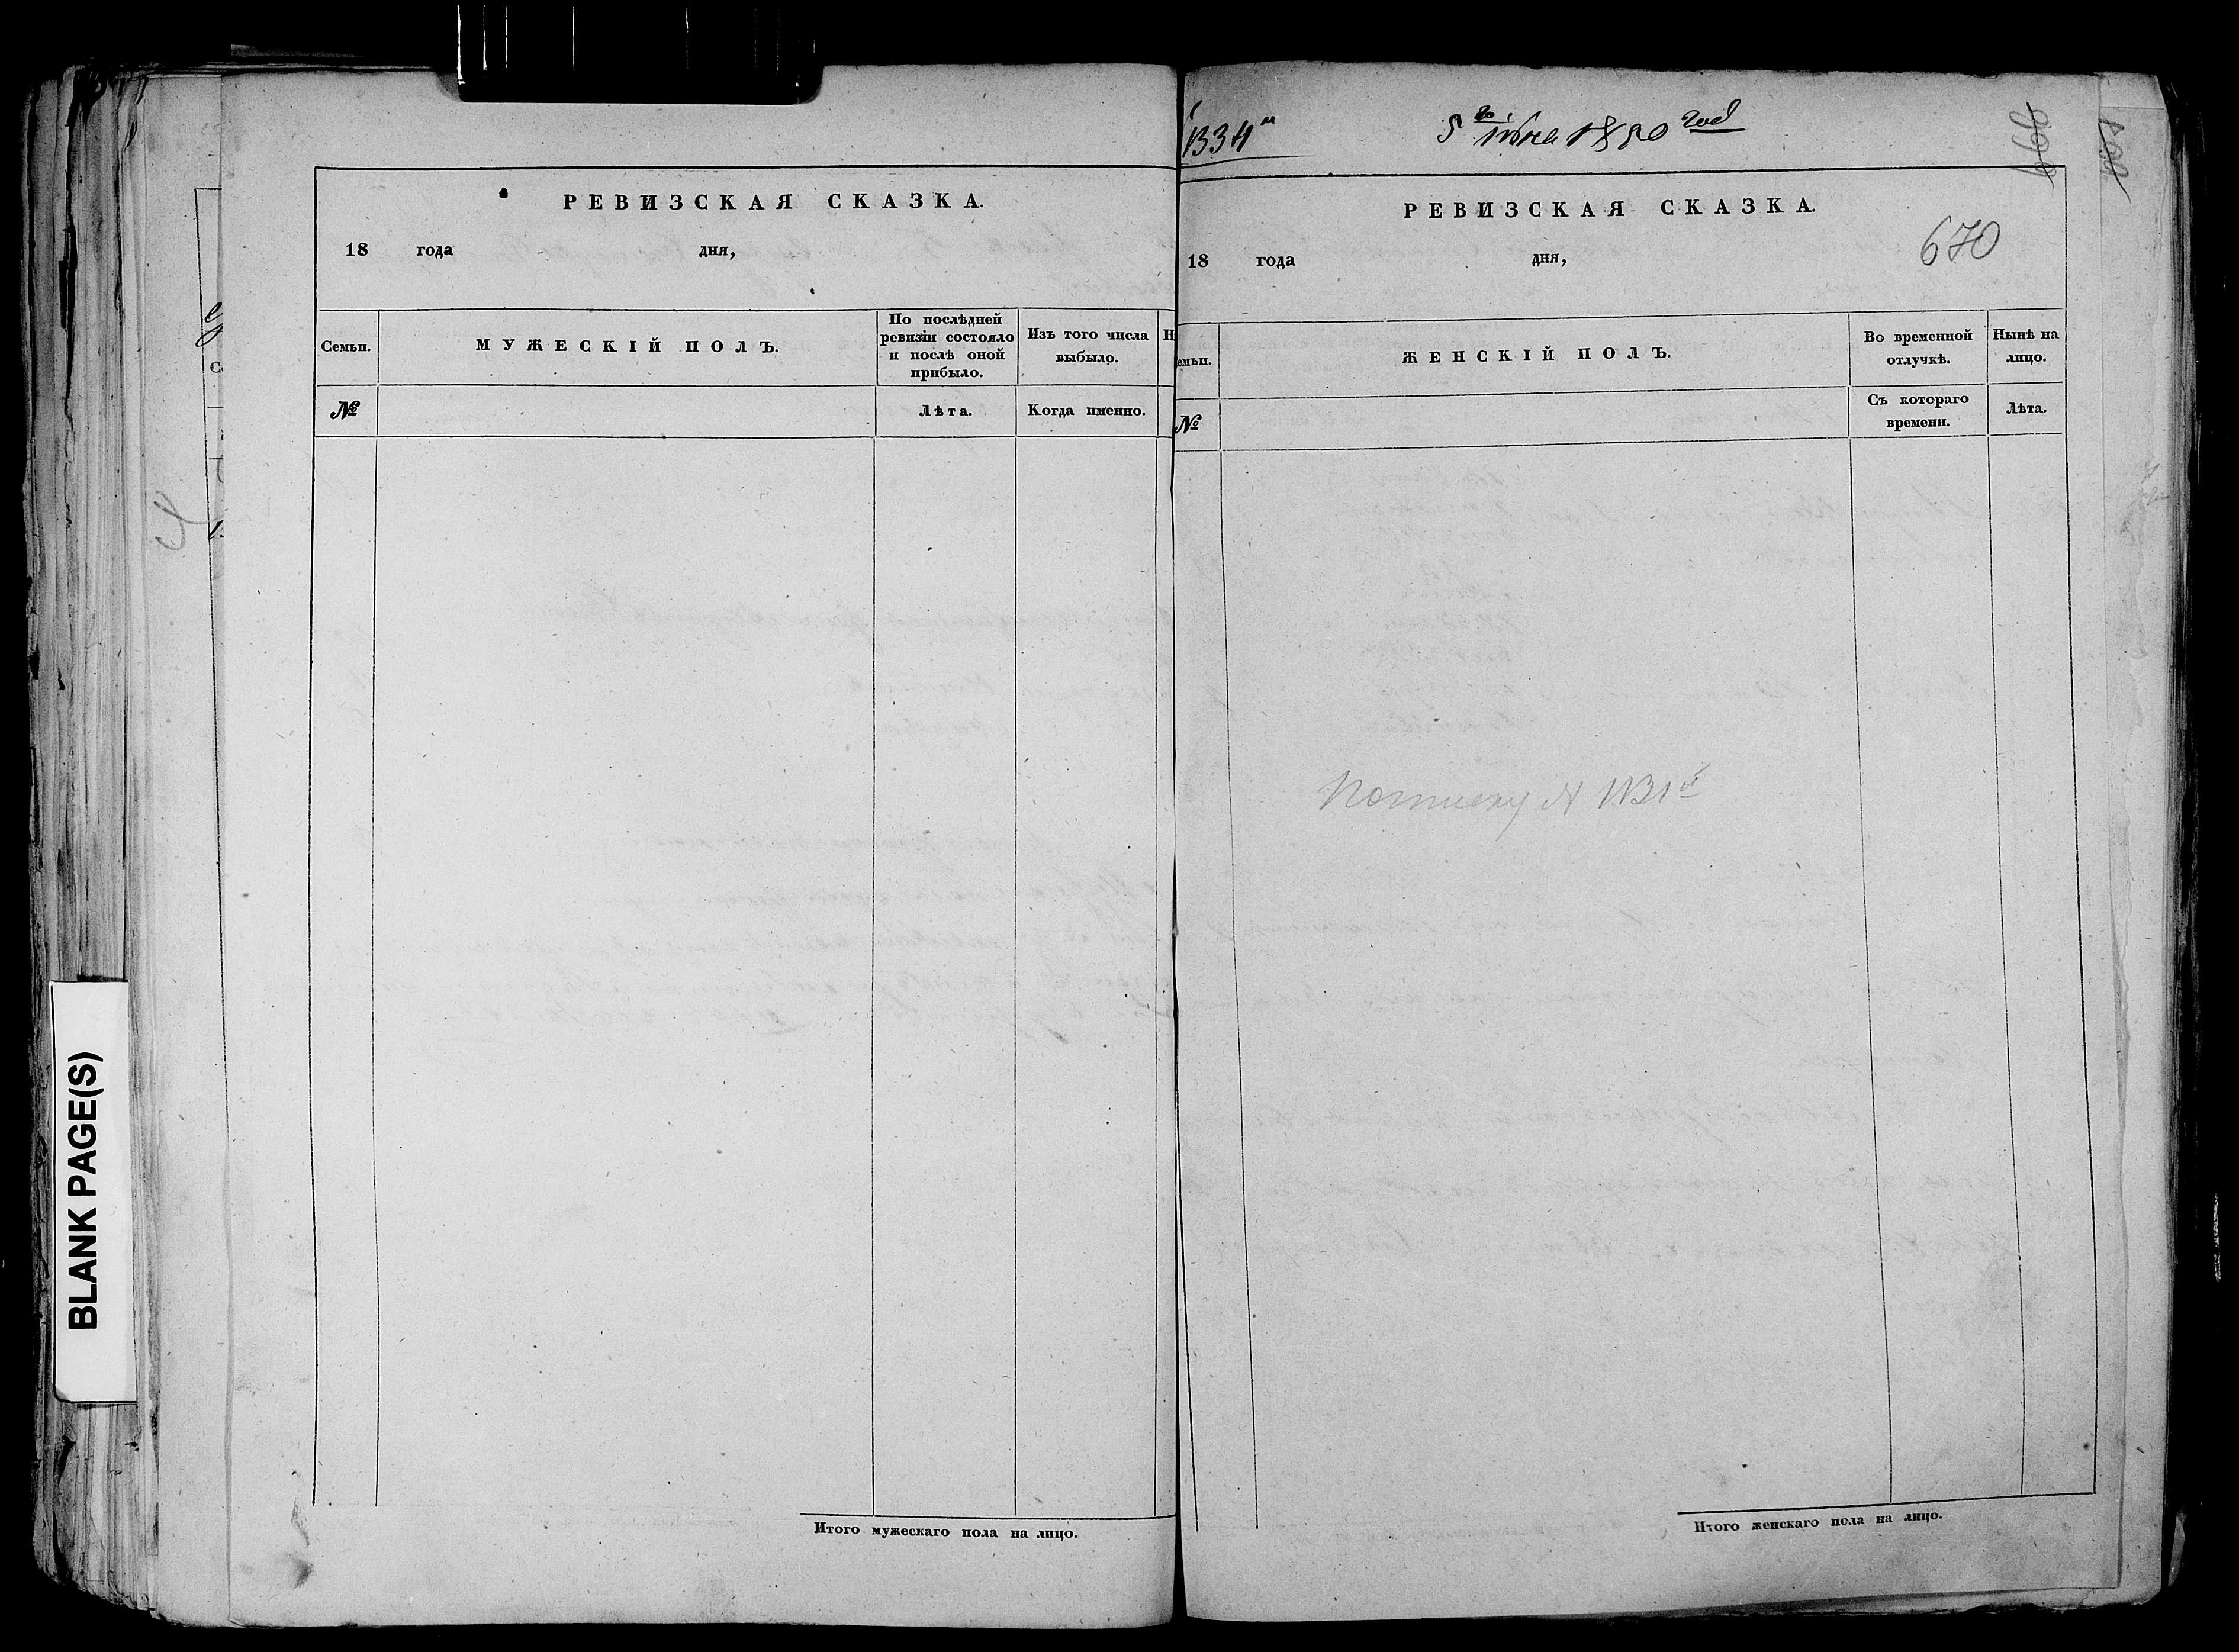 РЕВИЗСКАЯ СКАЗКА.
18 года дня,
Семьи. МУЖЕСКІЙ ПОЛЪ. По послѣдней ревизіи состояло и послѣ оной прибыло. Изъ того числа выбыло. Н
№ Лѣта. Когда именно.
Итого мужескаго пола на лицо.
1334
5го іюня 1850 год
РЕВИЗСКАЯ СКАЗКА.
18 года дня,
670
емьи. ЖЕНСКІЙ ПОЛЪ. Во временной отлучкѣ. Нынѣ на лицо.
№ Съ котораго времени. Лѣта.
По списку №
Итого женскаго пола на лицо.
BLANK PAGE(S)